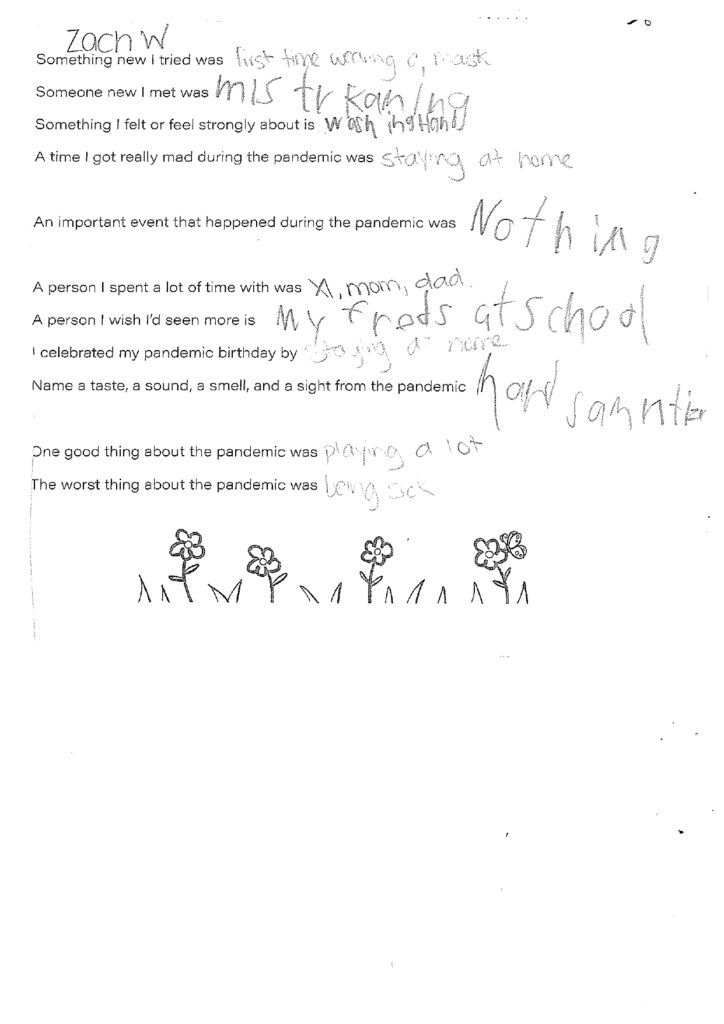 Zach W
Something new I tried was first time wrning a mask
Someone new I met was mis tr Kaning
Something I felt or feel strongly about is Wash ing Hand
A time I got really mad during the pandemic was staying at home
An important event that happened during the pandemic was Nothing
A person I spent a lot of time with was XI, mom, dad.
A person I wish I'd seen more is My freds at school
I celebrated my pandemic birthday by staying at home
Name a taste, a sound, a smell, and a sight from the pandemic hand
One good thing about the pandemic was playing a lot
The worst thing about the pandemic was being sck